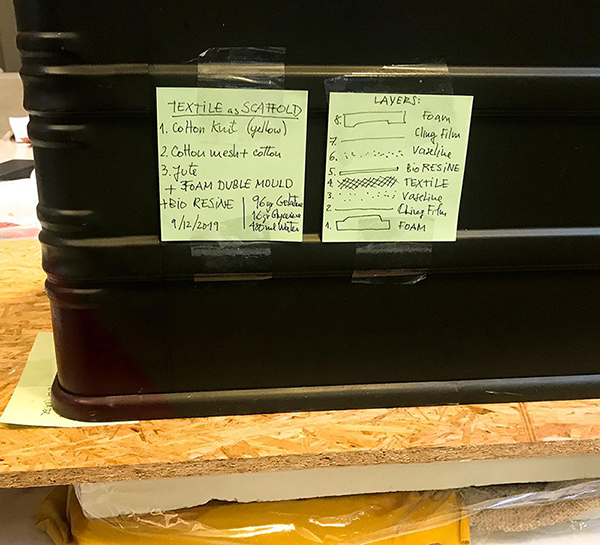 TEXTILE as SCAFFOLD
1. Cotton Knit (yellow)
2. Cotton mesh + cotton
3. Jute
+ FOAM DUBLE MOULD
+ BIO RESINE
96 gr Gelatine
16 gr Glycerine
480 ml Water
9/12/2019
LAYERS:
8. Foam
7. Cling Film
6. Vaseline
5. BIO RESINE
4. TEXTILE
3. Vaseline
2. Cling Film
1. FOAM